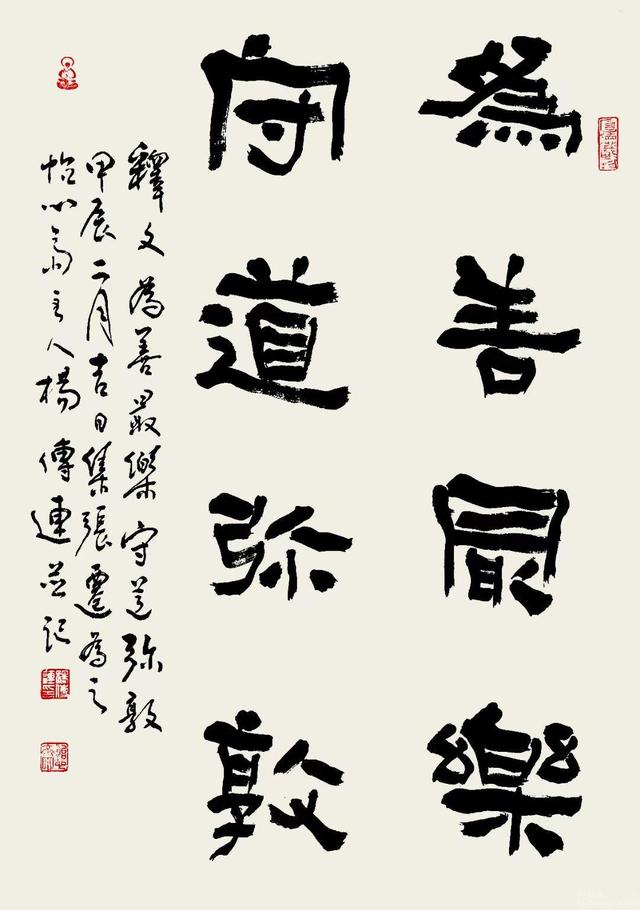 為善最樂
守道弥敦
釋文為善最樂守道弥敦
甲辰二月吉日集張遷為之
怡心斋主人楊傳連並記